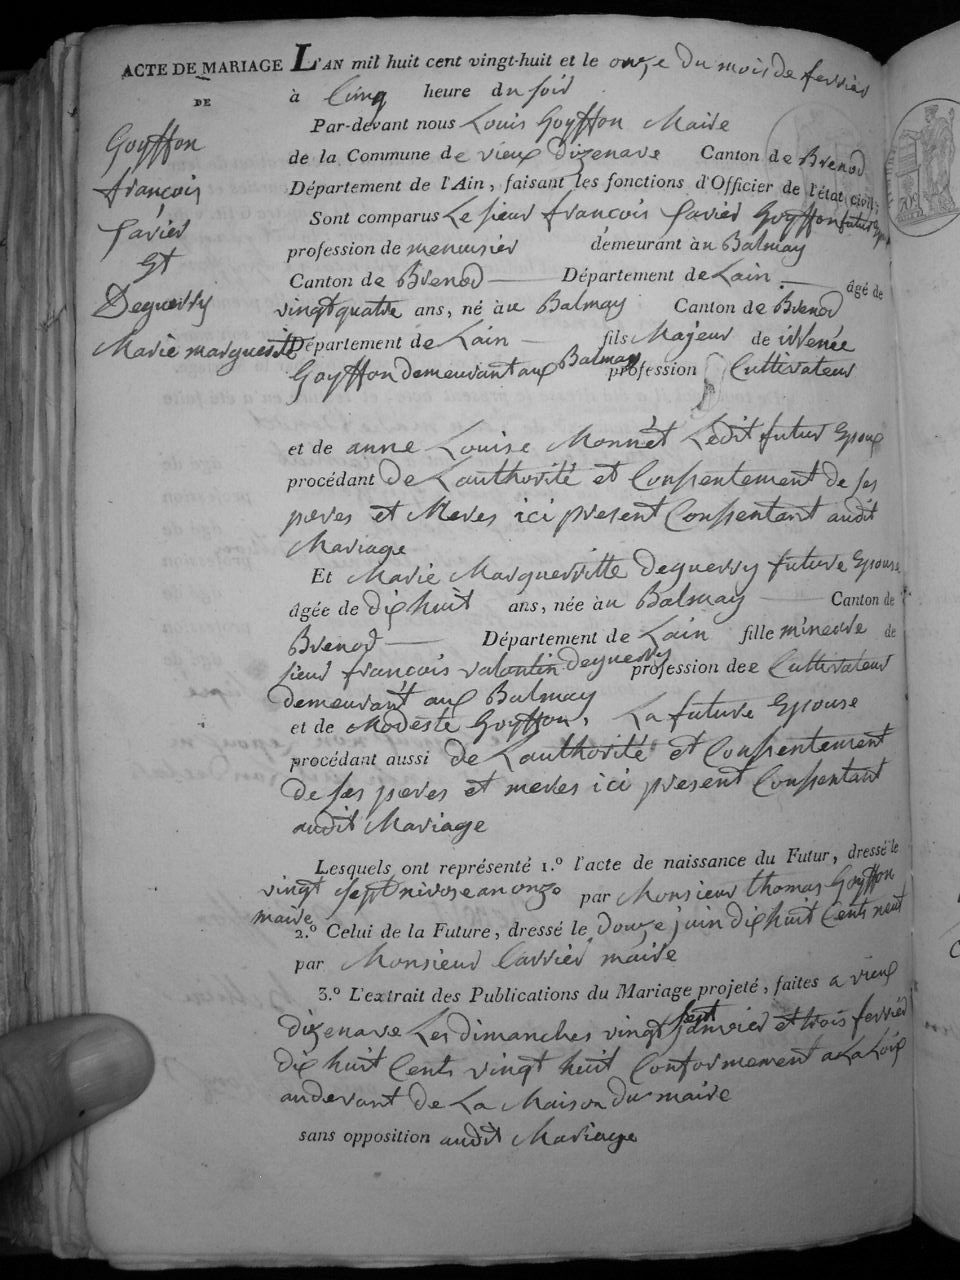 ACTE DE MARIAGE
DE
Goyffon
françois
Xavier
Et
Deguerry
Marie marguerite
L'AN mil huit cent vingt-huit et le onze du mois de fevrier
à Cinq heure du soir
Par-devant nous Louis Goyffon Maire
de la Commune de vieux dizenave Canton de Brenod
Département de l'Ain, faisant les fonctions d'Officier de l'état civil;
Sont comparus Le sieur françois Xavier Goyffon futur Epoux
profession de menuisier demeurant àu Balmay
Canton de Brenod Département de Lain âgé de
vingtquatre ans, né àu Balmay Canton de Brenod
Département de Lain fils Majeur de irénée
Goyffon demeurant aux Balmay profession Cultivateur
et de anne Louise Monnet Ledit futur Epoux
procédant de Lauthorité et Consentement de ses
peres et Meres ici present Consentant audit
Mariage
Et Marie Marguerritte deguerry future Epouse
âgée de dix huit ans, née àu Balmay Canton de
Brenod Département de Lain fille mineure de
sieur françois valantin deguerry profession dee Cultivateur
demeurant aux Balmay
et de Modeste Goyffon, La future Epouse
procédant aussi de Lauthorité et Consentement
de ses peres et meres ici present Consentant
audit Mariage
Lesquels ont représenté 1.º l'acte de naissance du Futur, dressé le
vingt sept nivose an onze par Monsieur thomas Goyffon
maire
2.º Celui de la Future, dressé le douze juin dix huit Cents neuf
par Monsieur Carrier maire
3.º L'extrait des Publications du Mariage projeté, faites a vieux
dizenave Les dimanches vingt sept janvier et trois fevrier
dix huit Cents vingt huit Conformement a La Loix
audevant de La Maison du maire
sans opposition audit Mariage